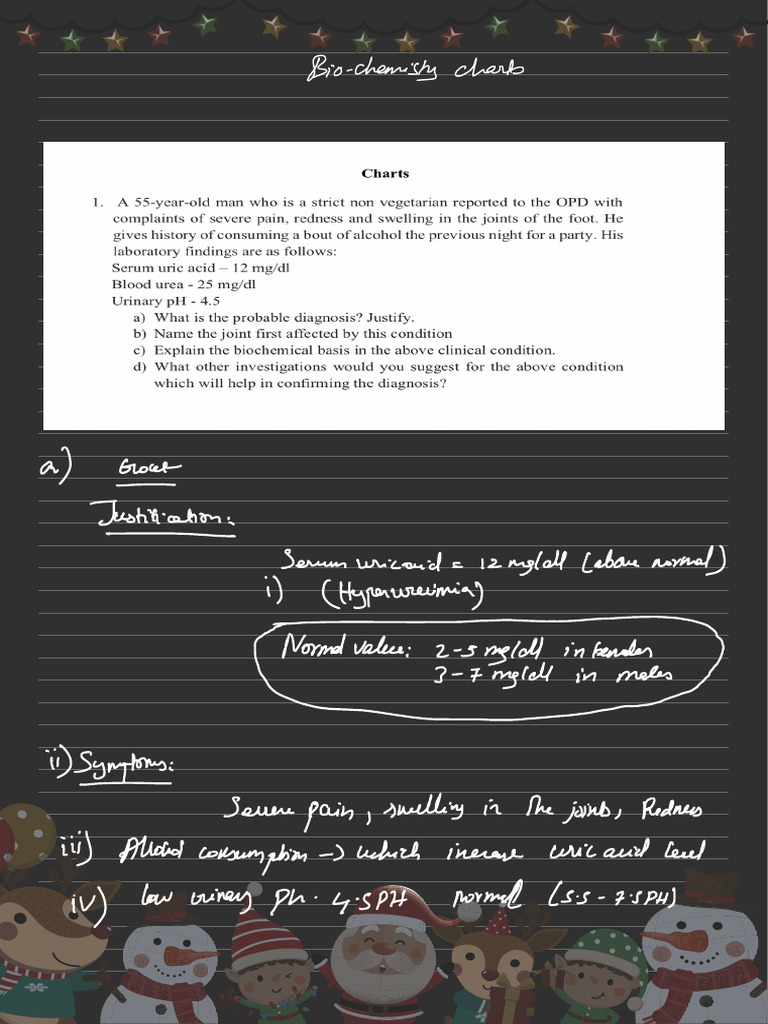 Bio-chemisty charts
Charts
1. A 55-year-old man who is a strict non vegetarian reported to the OPD with
complaints of severe pain, redness and swelling in the joints of the foot. He
gives history of consuming a bout of alcohol the previous night for a party. His
laboratory findings are as follows:
Serum uric acid – 12 mg/dl
Blood urea - 25 mg/dl
Urinary pH - 4.5
a) What is the probable diagnosis? Justify.
b) Name the joint first affected by this condition
c) Explain the biochemical basis in the above clinical condition.
d) What other investigations would you suggest for the above condition
which will help in confirming the diagnosis?
a) Gout
Justification:
Serum uric acid = 12 mg/dl (above normal)
i) (Hyperuremia)
Normal value: 2-5 mg/dl in females
3-7 mg/dl in males
ii) Symptoms:
Severe pain, swelling in the joints, Redness
iii) Alcohol consumption → which increase uric acid level
iv) low urinary PH. 4.5PH normal (5.5 - 7.5PH)